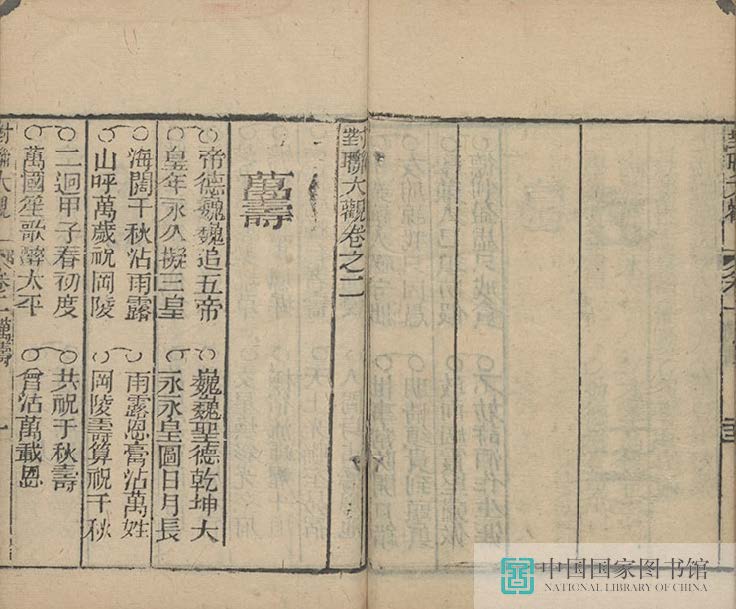 對聯大觀
對聯大觀卷之二
萬壽
帝德巍巍追五帝
巍巍聖德乾坤大
皇年永久擬三皇
永永皇圖日月長
海闊千秋沾雨露
雨露恩膏沾萬姓
山呼萬歲祝岡陵
岡陵壽算祝千秋
二迴甲子春初度
共祝于秋壽
萬國笙歌醉太平
曾沾萬載恩
對聯大觀
卷二 萬壽
一
中国国家图书馆
NATIONAL LIBRARY OF CHINA